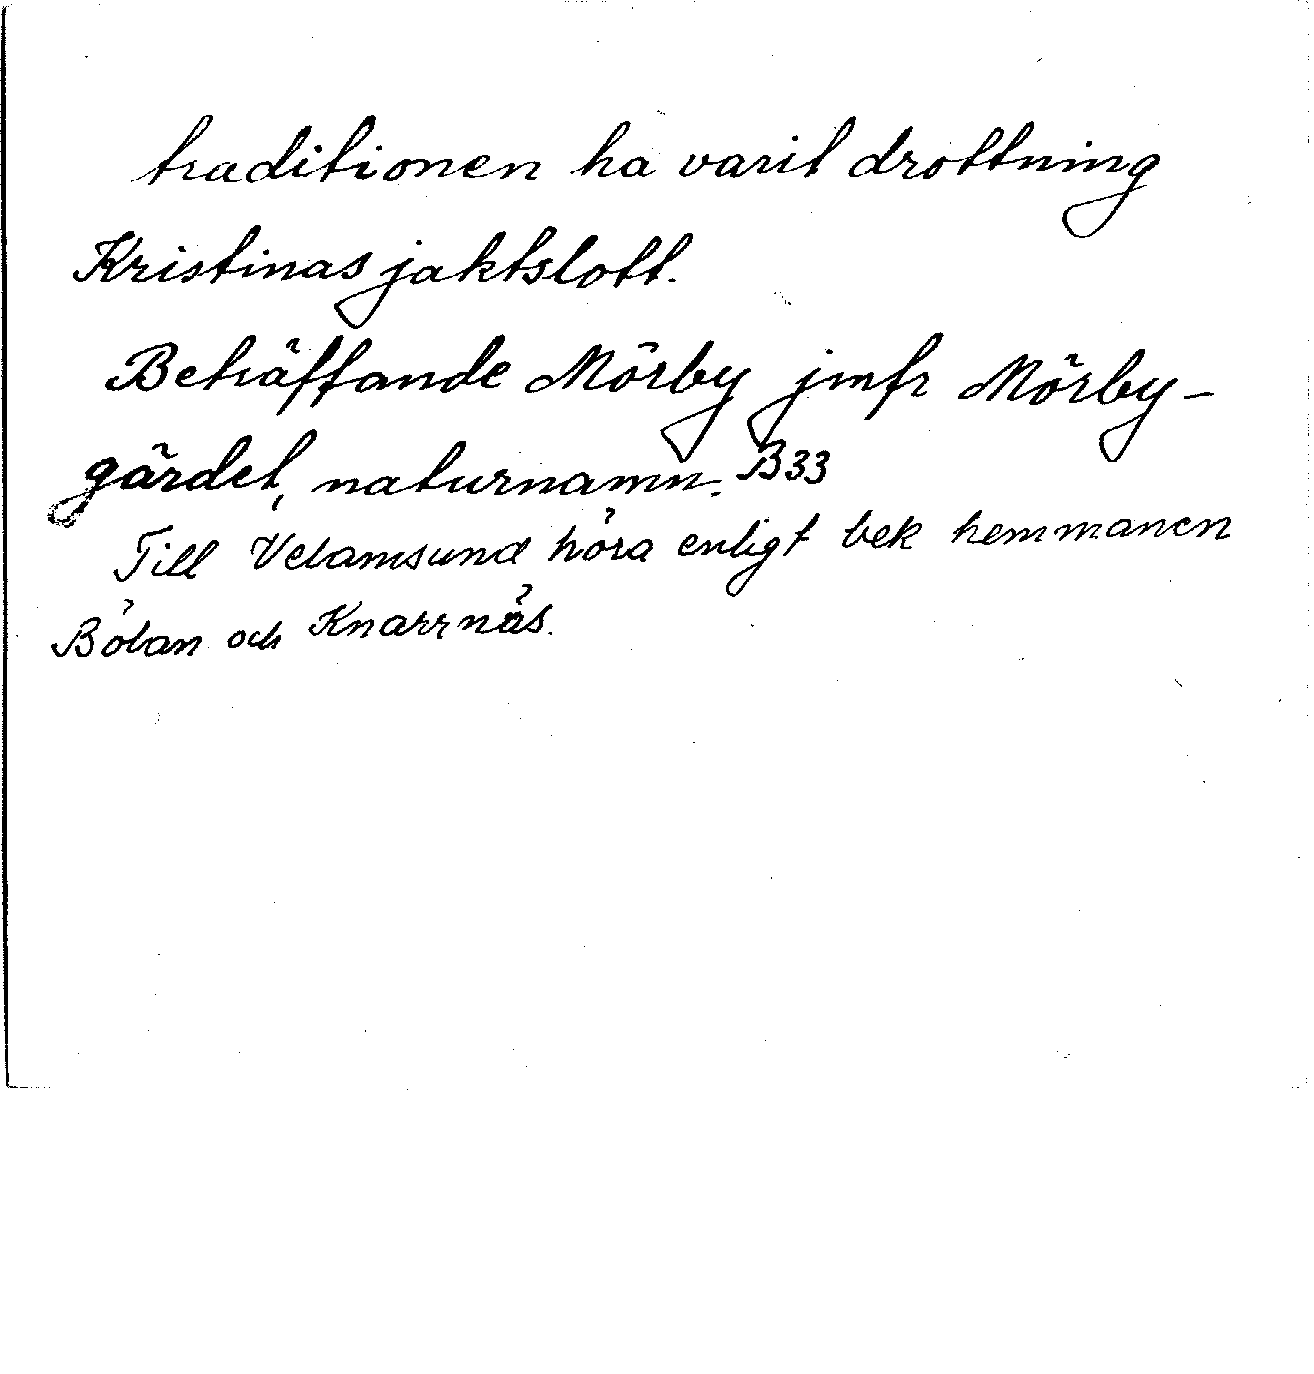 traditionen ha varit drottning
Kristinas jaktslott.
Beträffande Mörby jmfr Mörby-
gärdet, naturnamn. B33
Till Velamsund höra enligt bek hemmanen
Bölan och Knarrnäs.